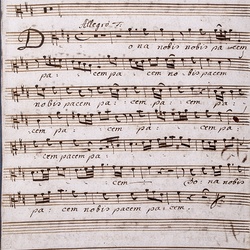 Allegro
Dona nobis nobis pacem
pa: cem pa: cem no bis pacem
nobis pacem pa: cem pa:
cem pa: cem pa:
cem pacem pa
cem do na nobis
pa: cem nobis pacem pa: cem.